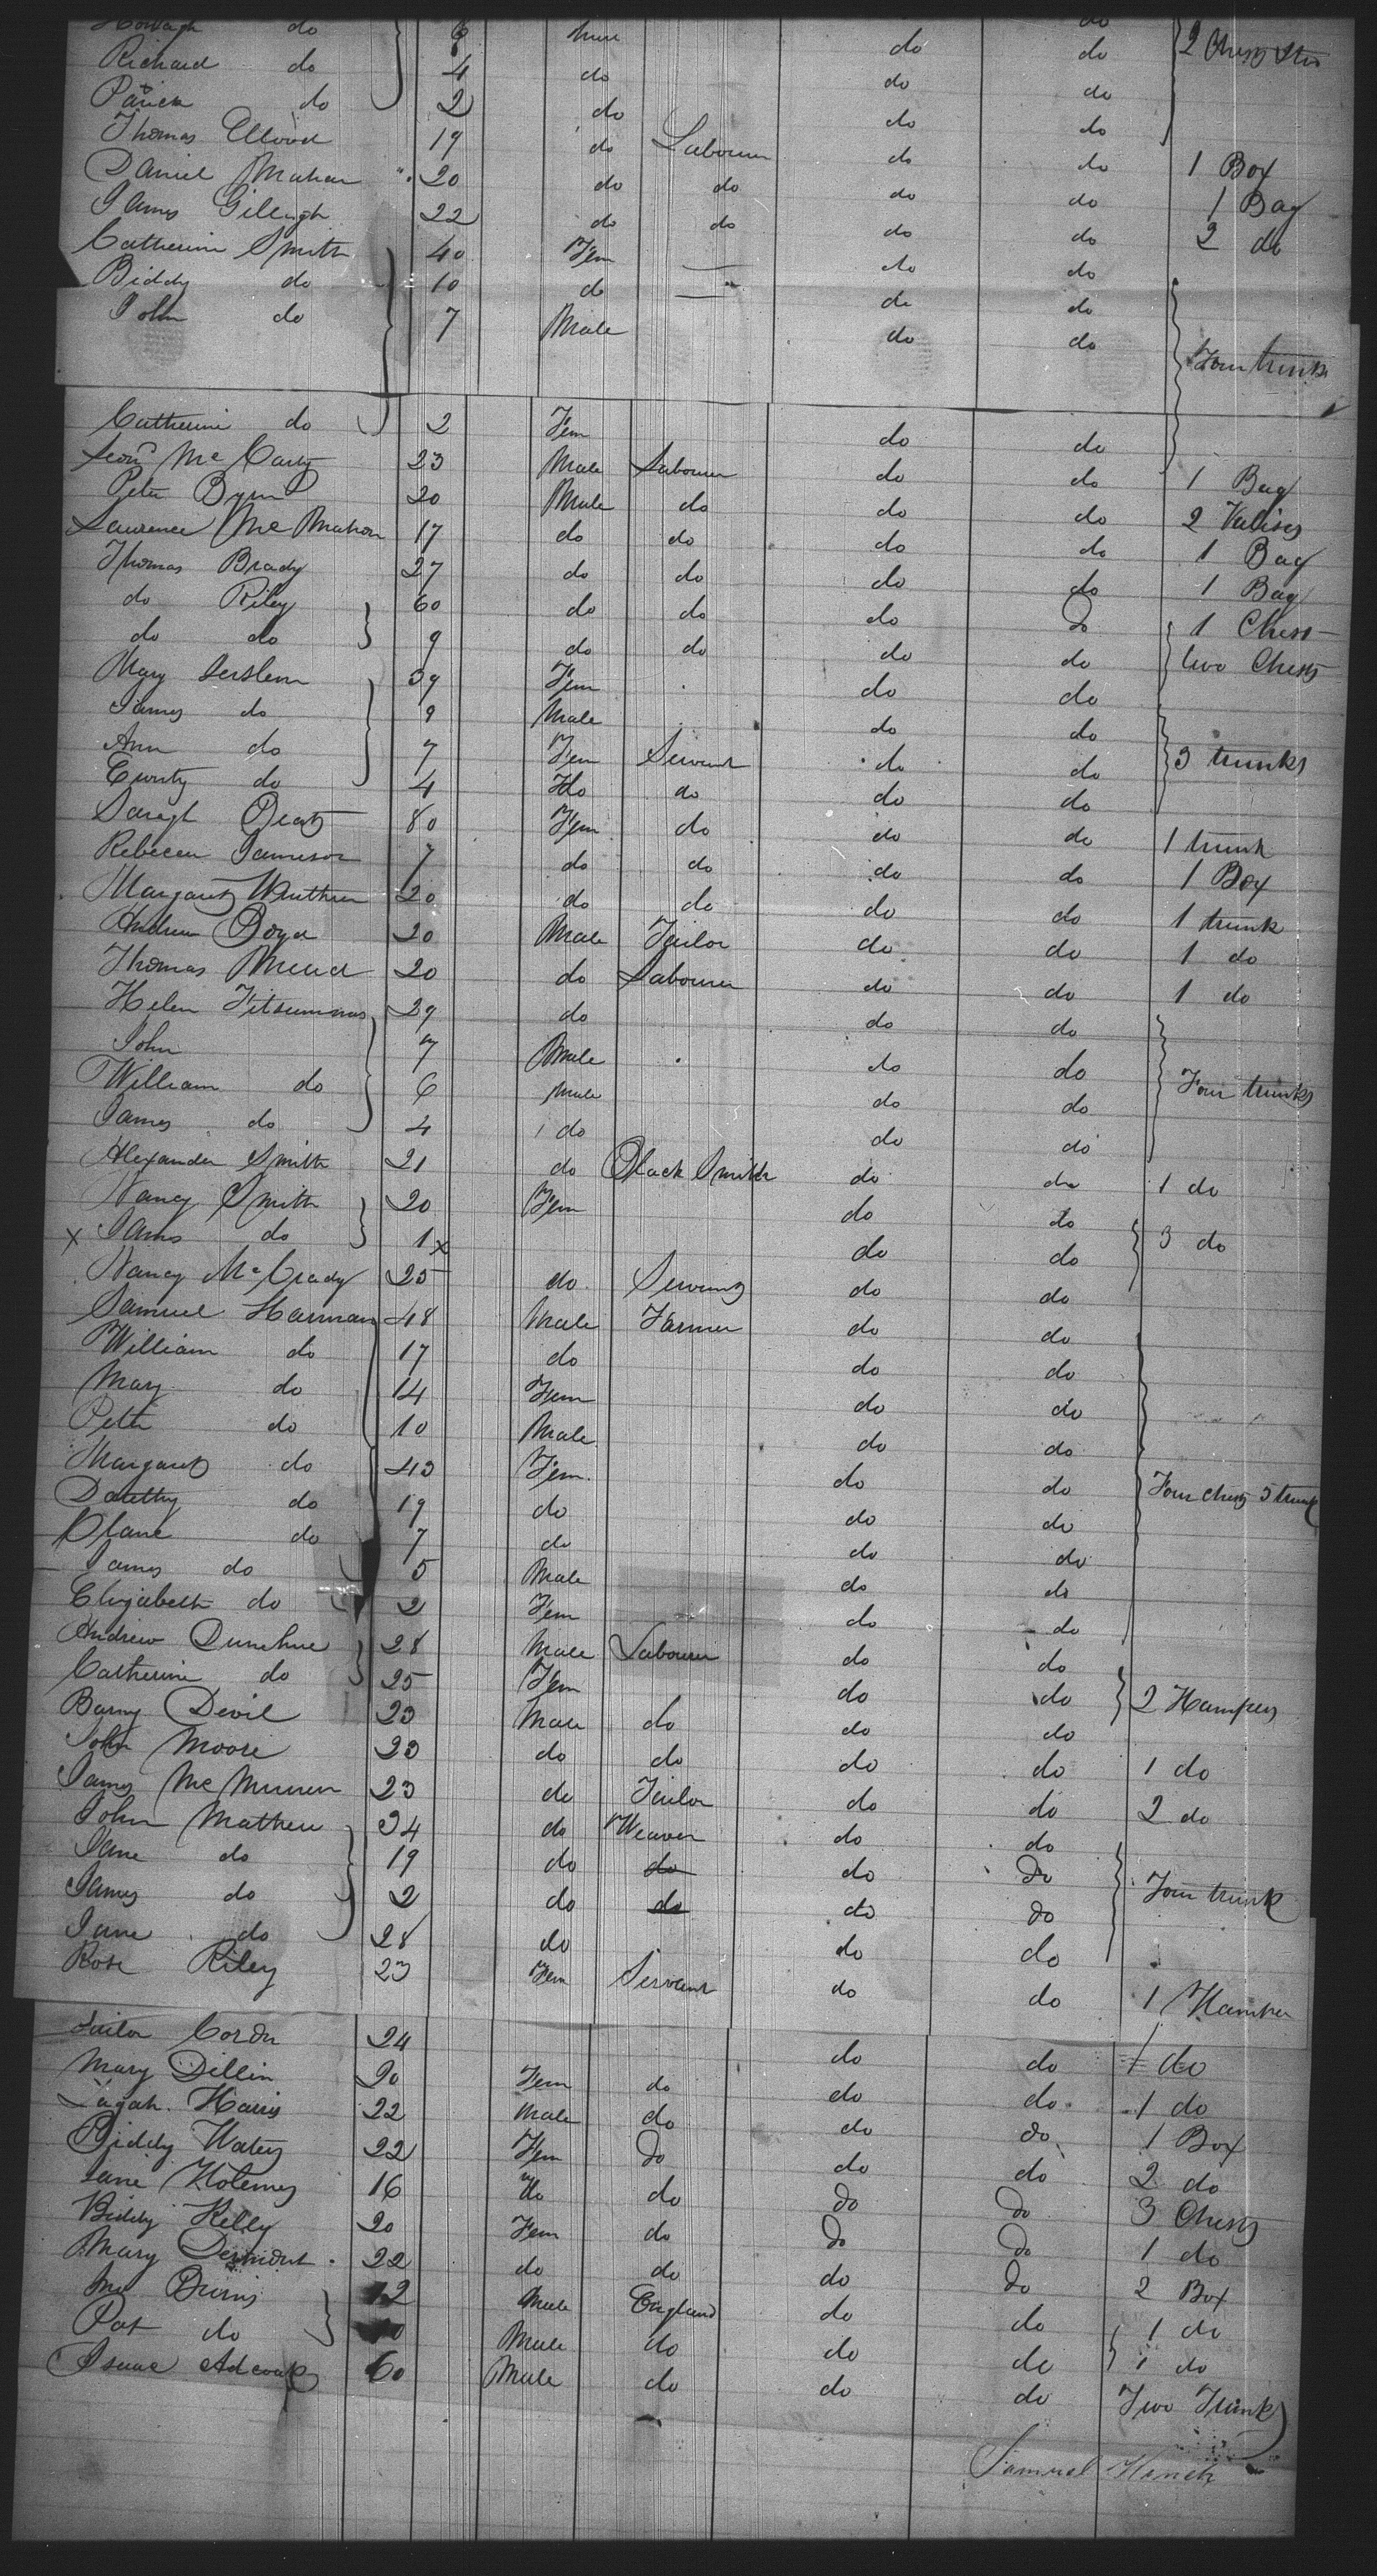 do 6 do do 2 Chests
Richard do 4 do do do
Patrick do 2 do do do
Thomas 19 do Labourer do do 1 Box
Daniel Mahan 20 do do do do 1 Bag
James 22 do do do do 2 do
Catherine Smith 40 Fem — do do
Biddy do 10 do — do do
John do 7 Male do do Four trunks
Catherine do 2 Fem do do
Mc Carty 23 Male Labourer do do 1 Bag
Peter Byrne 20 Male do do do 2 Valises
Laurence Mc Mahon 17 do do do do 1 Bag
Thomas Brady 27 do do do do 1 Bag
do Riley 60 do do do do 1 Chest
do do 9 do do do do two Chests
Mary 39 Fem do do
James do 9 Male do do
Ann do 7 Fem Servant do do 3 trunks
do 4 do do do do
Saragh 80 Fem do do do 1 trunk
Rebecca Jameson 7 do do do do 1 Box
Margaret 20 do do do do 1 trunk
Andrew Boyd 20 Male Tailor do do 1 do
Thomas Mead 20 do Labourer do do 1 do
Helen Fitsummons 29 do do do
John 7 Male do do
William do 6 Male do do Four trunks
James do 4 do do do
Alexander Smith 21 do Black Smith do do 1 do
Nancy Smith 20 Fem do do
x James do 1 x do do 3 do
Nancy Mc Crady 25 do Servant do do
Samuel Harman 48 Male Farmer do do
William do 17 do do do
Mary do 14 Fem do do
Peter do 10 Male do do
Margaret do 43 Fem. do do Four chests 3 trunk
do 19 do do do
do 7 do do do
James do 5 Male do do
Elizabeth do 2 Fem do do
Andrew Dunehue 28 Male Labourer do do
Catherine do 25 Fem do do 2 Hampers
Barny Devil 23 Male do do do
John Moore 23 do do do do 1 do
James Mc 23 do Tailor do do 2 do
John Mathew 34 do Weaver do do
Jane do 19 do do do do
James do 2 do do do do Four trunk
Jane do 28 do do do
Rose Riley 23 Fem Servant do do 1 Hamper
24 do do 1 do
Mary Dillin 20 Fem do do do 1 do
Harris 22 Male do do do 1 Box
Biddy Waters 22 Fem do do do 2 do
Jane Holemes 16 do do do do 3 Chests
Biddy Kelly 20 Fem do do do 1 do
Mary 22 do do do do 2 Box
Burns 12 Male England do do 1 do
Pat do Male do do do 1 do
Isaac Adcouk 60 Male do do do Two Trunks
Samuel